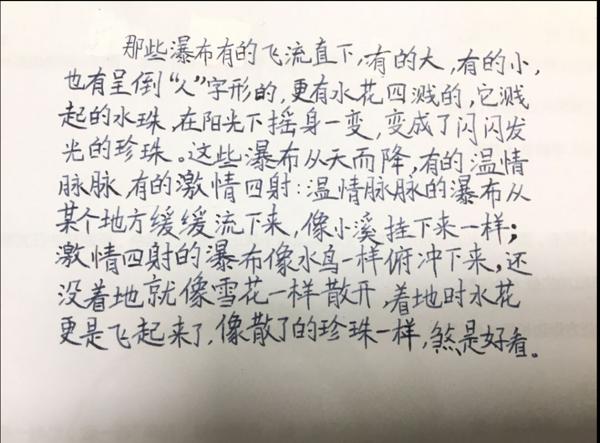 那些瀑布有的飞流直下,有的大,有的小,
也有呈倒“人”字形的,更有水花四溅的,它溅
起的水珠,在阳光下摇身一变,变成了闪闪发
光的珍珠。这些瀑布从天而降,有的温情
脉脉,有的激情四射:温情脉脉的瀑布从
某个地方缓缓流下来,像小溪挂下来一样;
激情四射的瀑布像水鸟一样俯冲下来,还
没着地就像雪花一样散开,着地时水花
更是飞起来了,像散了的珍珠一样,煞是好看。